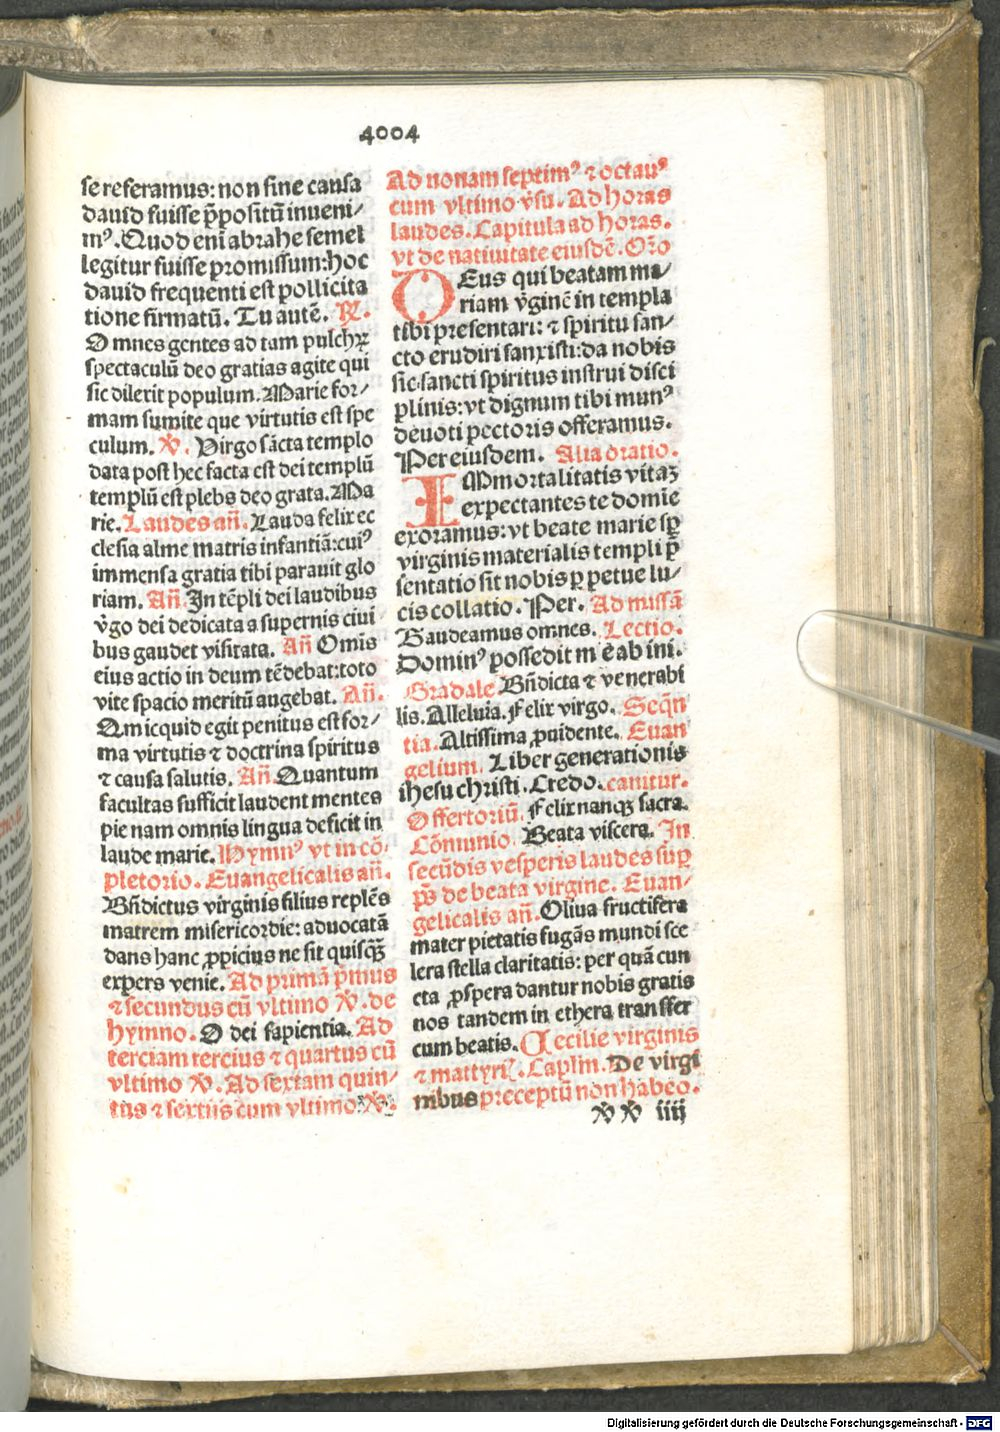 4004
se reseramus: non sine causa
dauid fuisse p̄positū inueni/
mꝰ. Quod eni abrahe semel
legitur fuisse promissum: hoc
dauid frequenti est pollicita
tione firmatū. Tu autē. R̸.
Omnes gentes ad tam pulchꝝ
spectaculū deo gratias agite qui
sic dilexit populum. Marie for/
mam sumite que virtutis est spe
culum. V̸. Virgo sācta templo
data post hec facta est dei templū
templū est plebs deo grata. Ma
rie. Laudes an̄. Lauda felix ec
clesia alme matris infantiā: cuiꝰ
immensa gratia tibi parauit glo
riam. An̄. In tēpli dei laudibus
v̊go dei dedicata a supernis ciui
bus gaudet visitata. An̄ Omīs
eius actio in deum tēdebat: toto
vite spacio meritū augebat. An̄.
Quicquid egit penitus est for/
ma virtutis ⁊ doctrina spiritus
⁊ causa salutis. An̄. Quantum
facultas sufficit laudent mentes
pie nam omnis lingua deficit in
laude marie. Hymnꝰ vt in cō/
pletorio. Euangelicalis an̄.
Bn̄dictus virginis filius replēs
matrem misericordie: aduocatā
dans hanc ꝓpicius ne sit quisꝙ̄
expers venie. Ad primā p̄mus
⁊ secundus cū vltimo V̸. de
hymno. O dei sapientia. Ad
terciam tercius ⁊ quartus cū
vltimo V̸. Ad sextam quin/
tus ⁊ sextus cum vltimo V̸.
Ad nonam septimꝰ ⁊ octauꝰ
cum vltimo v̊su. Ad horas
laudes. Capitula ad horas.
vt de natiuitate eiusdē. Or̄o
DEus qui beatam ma/
riam v̊ginē in templa
tibi presentari: ⁊ spiritu san/
cto erudiri sanxisti: da nobis
sic sancti spiritus instrui disci
plinis: vt dignum tibi munꝰ
deuoti pectoris offeramus.
Per eiusdem. Alia oratio.
IMmortalitatis vitaꝫ
expectantes te domie
exoramus: vt beate marie sꝑ
virginis materialis templi p̄
sentatio sit nobis ꝑpetue lu/
cis collatio. Per. Ad missā
Gaudeamus omnes. Lectio.
Dominꝰ possedit me ab ini.
Gradale Bn̄dicta ⁊ venerabi
lis. Alleluia. Felix virgo. Seqn̄
tia. Altissima ꝓuidente. Euan
gelium. Liber generationis
ihesu christi. Credo. canitur.
Offertoriū. Felix nanqꝫ sacra.
Cōmunio. Beata viscera. In
secūdis vesperis laudes suꝑ
ps̄ de beata virgine. Euan/
gelicalis an̄. Oliua fructifera
mater pietatis fugās mundi sce
lera stella claritatis: per quā cun
cta ꝓspera dantur nobis gratis
nos tandem in ethera transfer
cum beatis. Cecilie virginis
⁊ martyrꝭ. Caplm. De virgi
nibus preceptū non habeo.
V̸ V̸ iiij
Digitalisierung gefördert durch die Deutsche Forschungsgemeinschaft - DFG